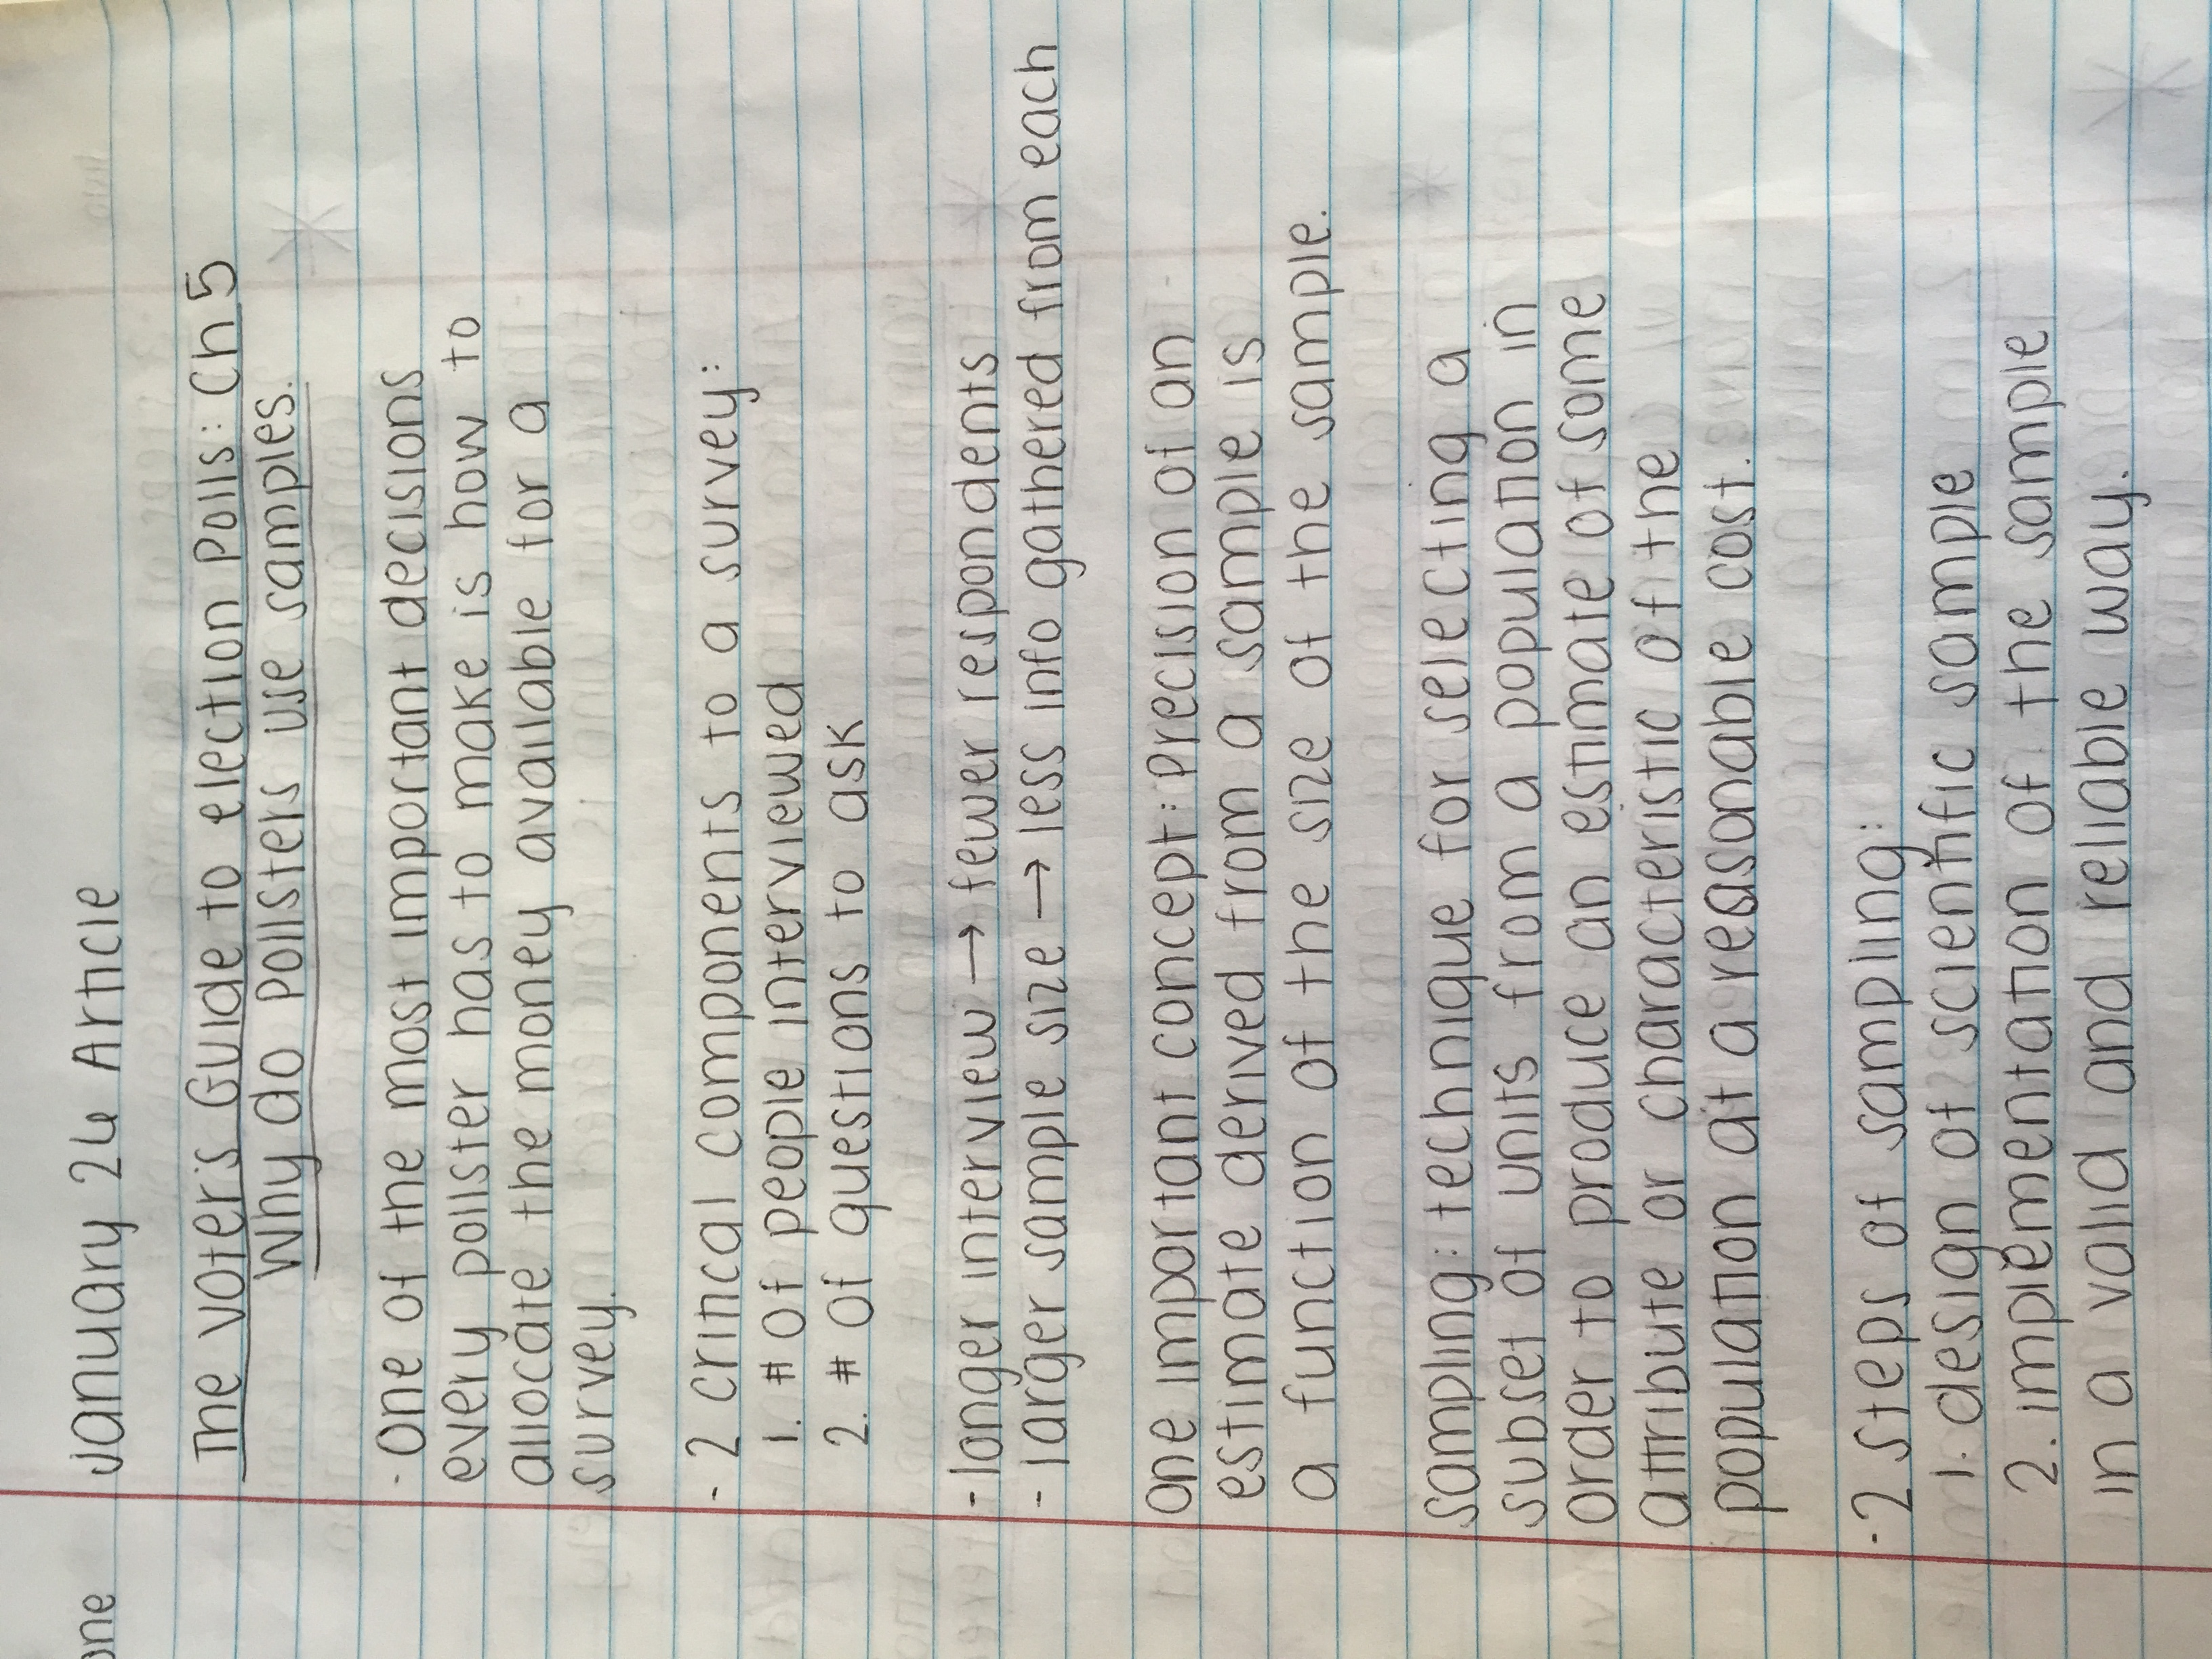 one January 24 Article
The Voter's Guide to election Polls: Ch 5
Why do pollsters use samples.
- One of the most important decisions
every pollster has to make is how to
allocate the money available for a
survey.
- 2 critical components to a survey:
1. # of people interviewed
2. # of questions to ask
- longer interview → fewer respondents
- larger sample size → less info gathered from each
one important concept: Precision of an
estimate derived from a sample is
a function of the size of the sample.
sampling: technique for selecting a
subset of units from a population in
order to produce an estimate of some
attribute or characteristic of the
population at a reasonable cost.
- 2 steps of sampling:
1. design of scientific sample
2. implementation of the sample
in a valid and reliable way.